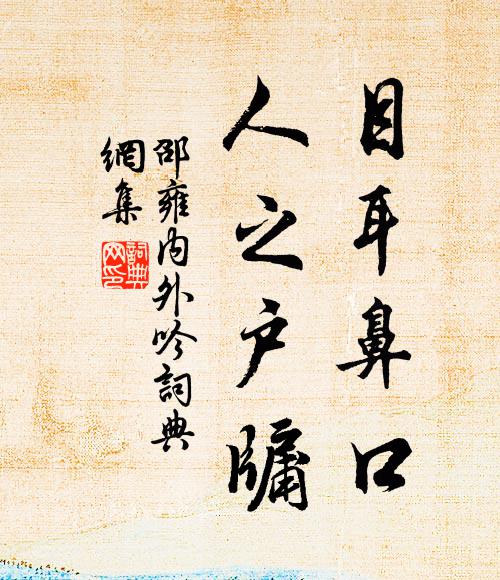 目耳鼻口
人之户牖
邵雍内外吟词典
網集
詞典網印